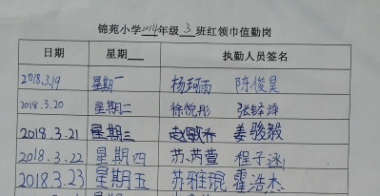 锦苑小学2014年级3班红领巾值勤岗
日期 星期 执勤人员签名
2018.3.19 星期一 杨珂雨 陈俊昊
2018.3.20 星期二 徐悦彤
2018.3.21 星期三 姜骏毅
2018.3.22 星期四 苏芮萱 程子涵
2018.3.23 星期五 苏雅琨 霍浩杰